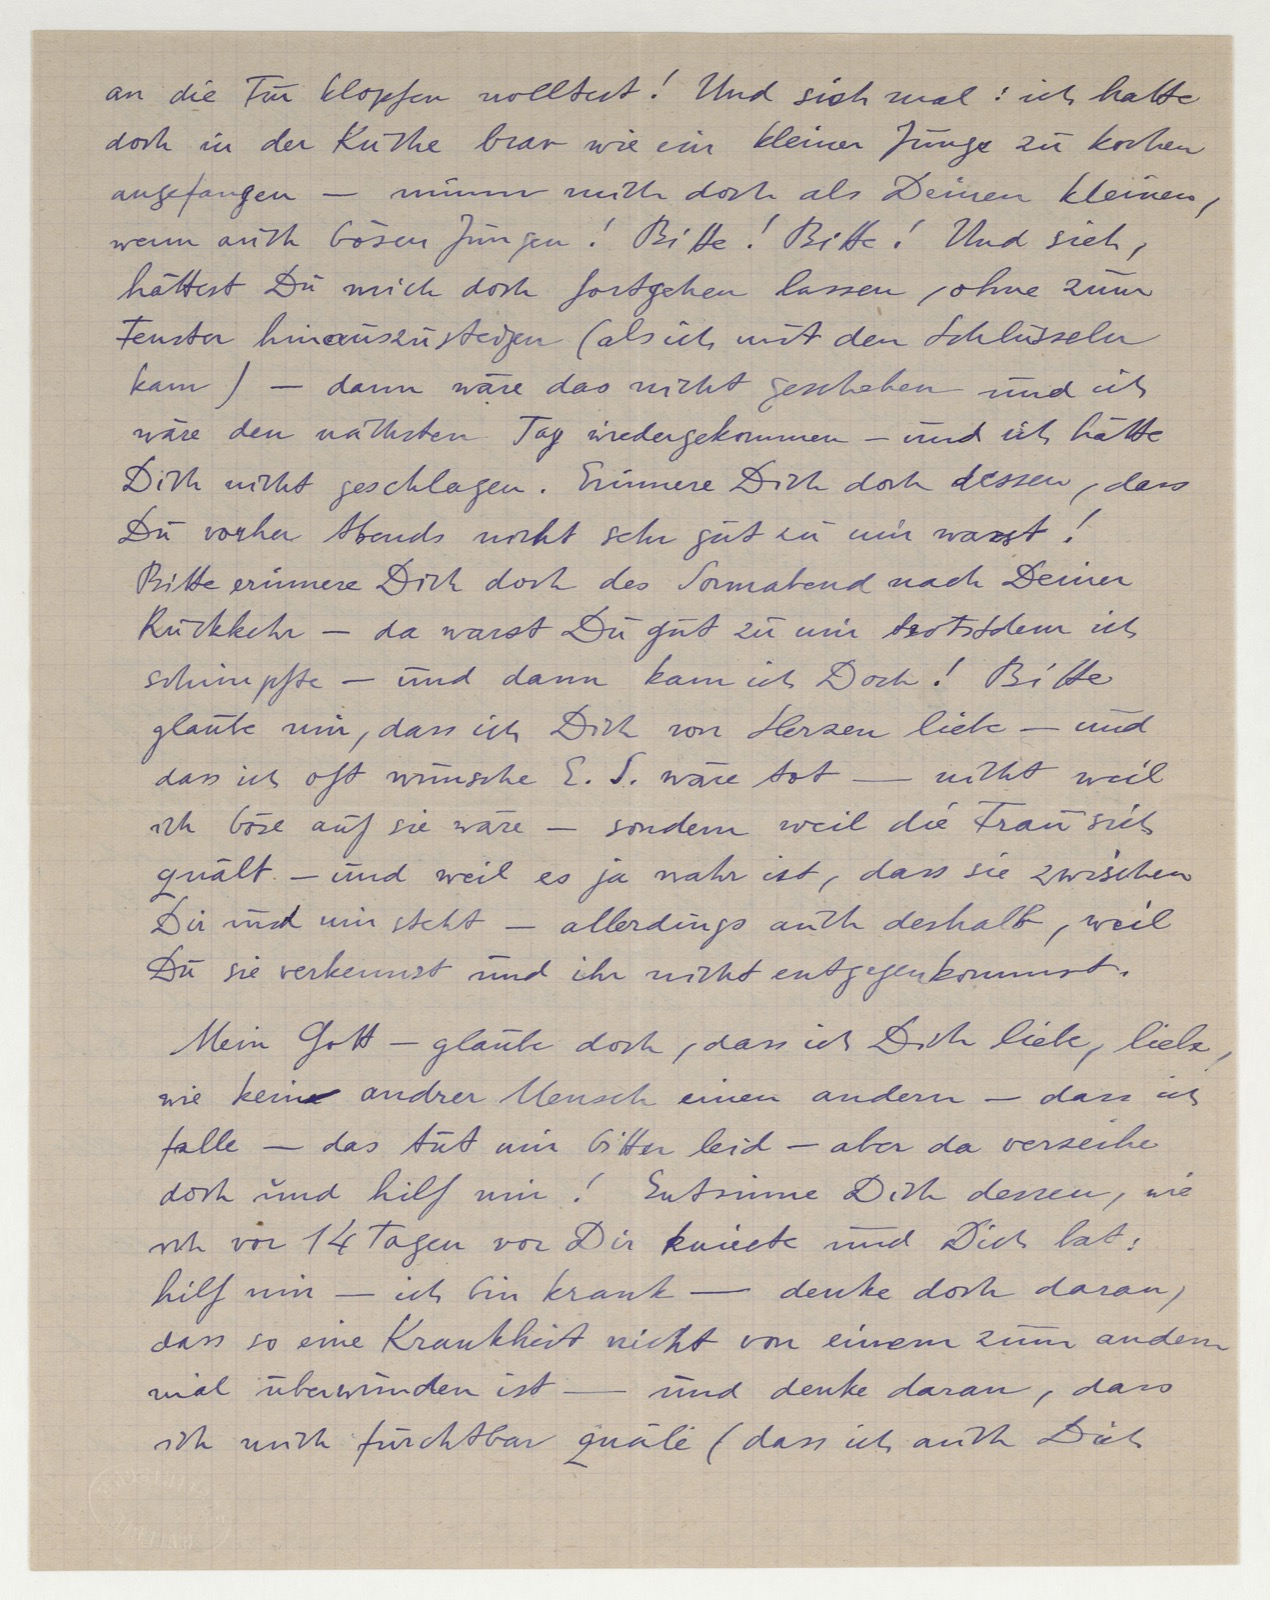 an die Tür klopfen wolltest! Und sieh mal: ich hatte
doch in der Küche brav wie ein kleiner Junge zu kochen
angefangen — nimm mich doch als Deinen kleinen,
wenn auch bösen Jungen! Bitte! Bitte! Und sieh,
hättest Du mich doch fortgehen lassen, ohne zum
Fenster hinauszusteigen (als ich mit den Schlüsseln
kam) — dann wäre das nicht geschehen und ich
wäre den nächsten Tag wiedergekommen — und ich hätte
Dich nicht geschlagen. Erinnere Dich doch dessen, dass
Du vorher Abends nicht sehr gut zu mir warst!
Bitte erinnere Dich doch des Sonnabend nach Deiner
Rückkehr — da warst Du gut zu mir trotzdem ich
schimpfte — und dann kam ich Doch! Bitte
glaube mir, dass ich Dich von Herzen liebe — und
dass ich oft wünsche E. S. wäre tot — nicht weil
ich böse auf sie wäre — sondern weil die Frau sich
quält — und weil es ja wahr ist, dass sie zwischen
Dir und mir steht — allerdings auch deshalb, weil
Du sie verkennst und ihr nicht entgegenkommst.
Mein Gott — glaube doch, dass ich Dich liebe, liebe,
wie kein andrer Mensch einen andern — dass ich
falle — das tut mir bitter leid — aber da verzeihe
doch und hilf mir! Entsinne Dich dessen, wie
ich vor 14 Tagen vor Dir kniete und Dich bat:
hilf mir — ich bin krank — denke doch daran,
dass so eine Krankheit nicht von einem zum andern
mal überwunden ist — und denke daran, dass
ich mich furchtbar quäle (dass ich auch Dich